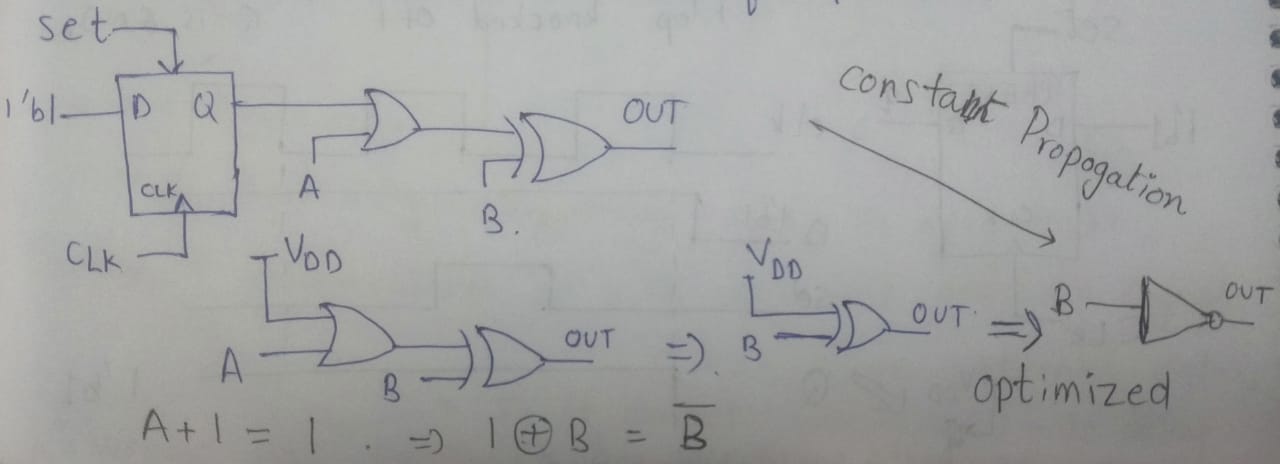 set
1'b1 D Q OUT
A
CLK
B.
CLK
Constant Propogation
VDD
A B OUT
=>.
VDD
B OUT.
=> B OUT
optimized
A + 1 = 1 . => 1 ⊕ B = B̅